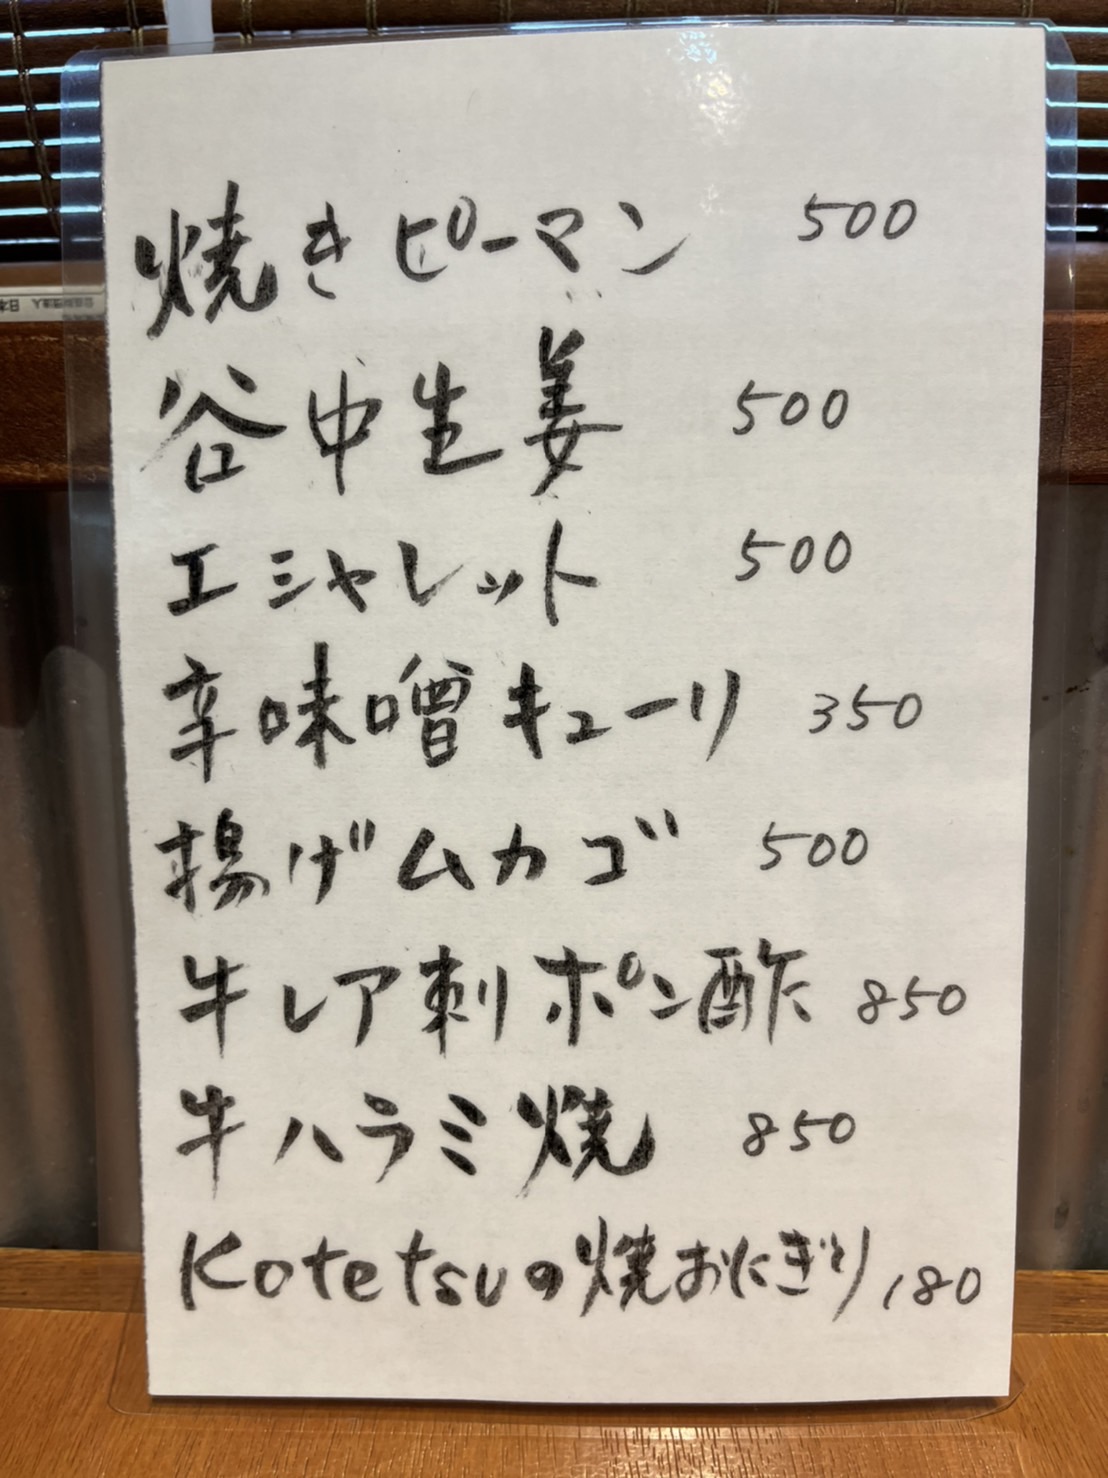 焼きピーマン 500
谷中生姜 500
エシャレット 500
辛味噌キューリ 350
揚げムカゴ 500
牛レア刺ポン酢 850
牛ハラミ焼 850
Kotetsuの焼おにぎり 180